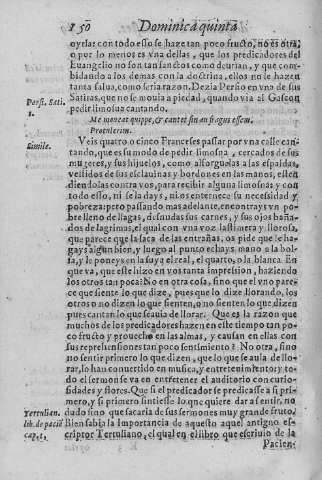 150 Dominica quinta
oyrlas con todo esso se haze tan poco fructo, no es otra,
o por lo menos es vna dellas, que los predicadores del
Euangelio no son tan sanctos como deurian, y que com-
bidando a los demas con la doctrina, ellos no se hazen
tanta salua, como seria razon. Dezia Persio en vna de sus
Satiras, que no se mouia a piedad, quando via al Gascon
pedir limosna cantando.
Pers. Sati.
1.
Me moueat quippe, & cantet si naufragus assem.
Protulerim.
Simile.
Veis quatro o cinco Franceses passar por vna calle can-
tando, que es su modo de pedir limosna, cercados de sus
mugeres, y sus hijuelos, como alforguelas a las espaldas,
vestidos de sus esclauinas y bordones en las manos, esten
diendolas contra vos, para recibir alguna limosna; y con
todo esso, ni se la days, ni os enternece su necessidad y
pobreza: pero passando mas adelante, encontrays vn po-
bre lleno de llagas, desnudas sus carnes, y sus ojos baña-
dos de lagrimas, el qual con vna voz lastimera y llorosa,
que parece que la saca de las entrañas, os pide que le ha-
gays algun bien, y luego al punto echays mano a la bol-
sa, y le poneys en la suya el real, el quarto, o la blanca. En
que va, que este hizo en vos tanta impression, haziendo
los otros tan poca? No en otra cosa, sino que el vno pare-
ce que siente lo que dize, pues que lo dize llorando, los
otros o no dizen lo que sienten, o no sienten lo que dizen
pues cantan lo que se auia de llorar. Que es la razon que
muchos de los predicadores hazen en este tiempo tan po-
co fructo y prouecho en las almas, y causan en ellas con
sus reprehensiones tan poco sentimiento? No otra, sino
no sentir primero lo que dizen, que lo que se auia de llo-
rar, lo han conuertido en musica, y entretenimiento; y to-
do el sermon se va en entretener el auditorio con curio-
sidades y flores. Que si el predicador se predicasse a si pri-
mero, y si primero sintiesse lo que quiere dar a sentir, no
dudo sino que sacaria de sus sermones muy grande fruto.
Tertulian.
lib. de pacie
cap. 1.
Bien sabia la importancia de aquesto aquel antigno es-
criptor Tertuliano, el qual en el libro que escriuio de la
Pacien-